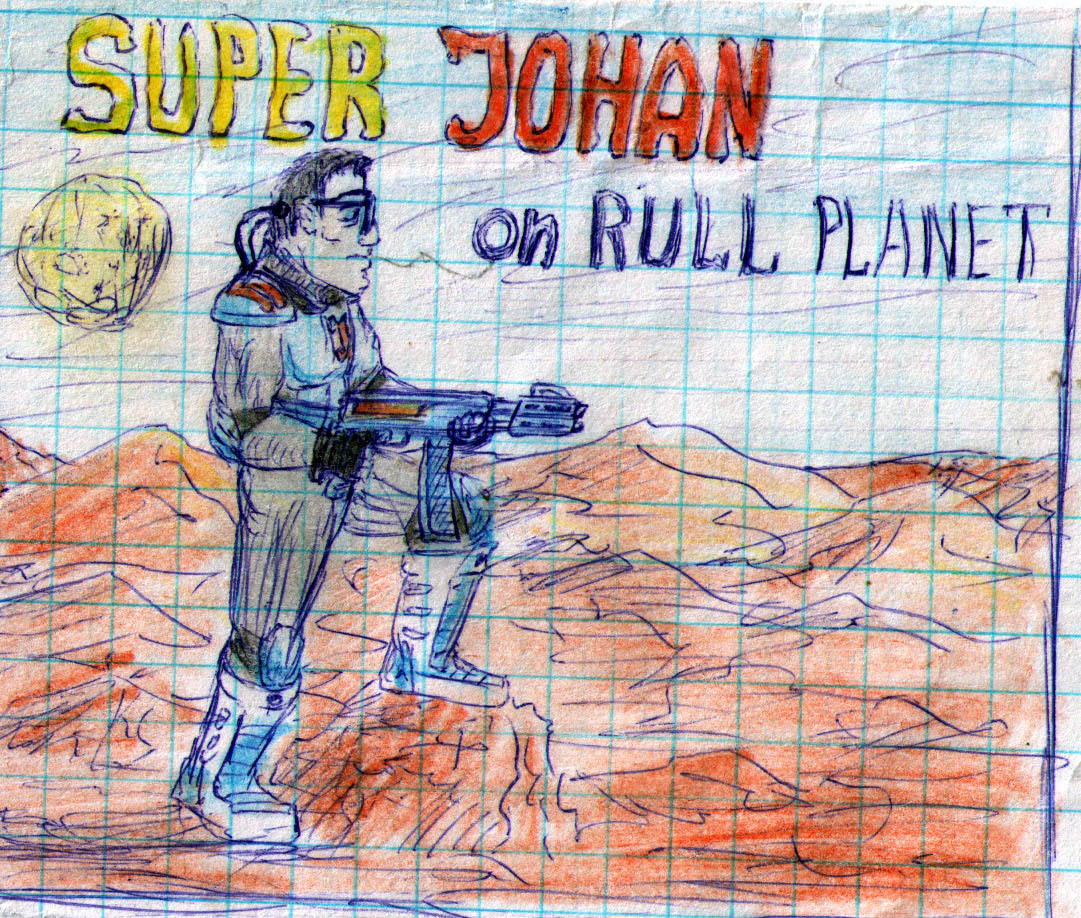 SUPER JOHAN
on RULL PLANET